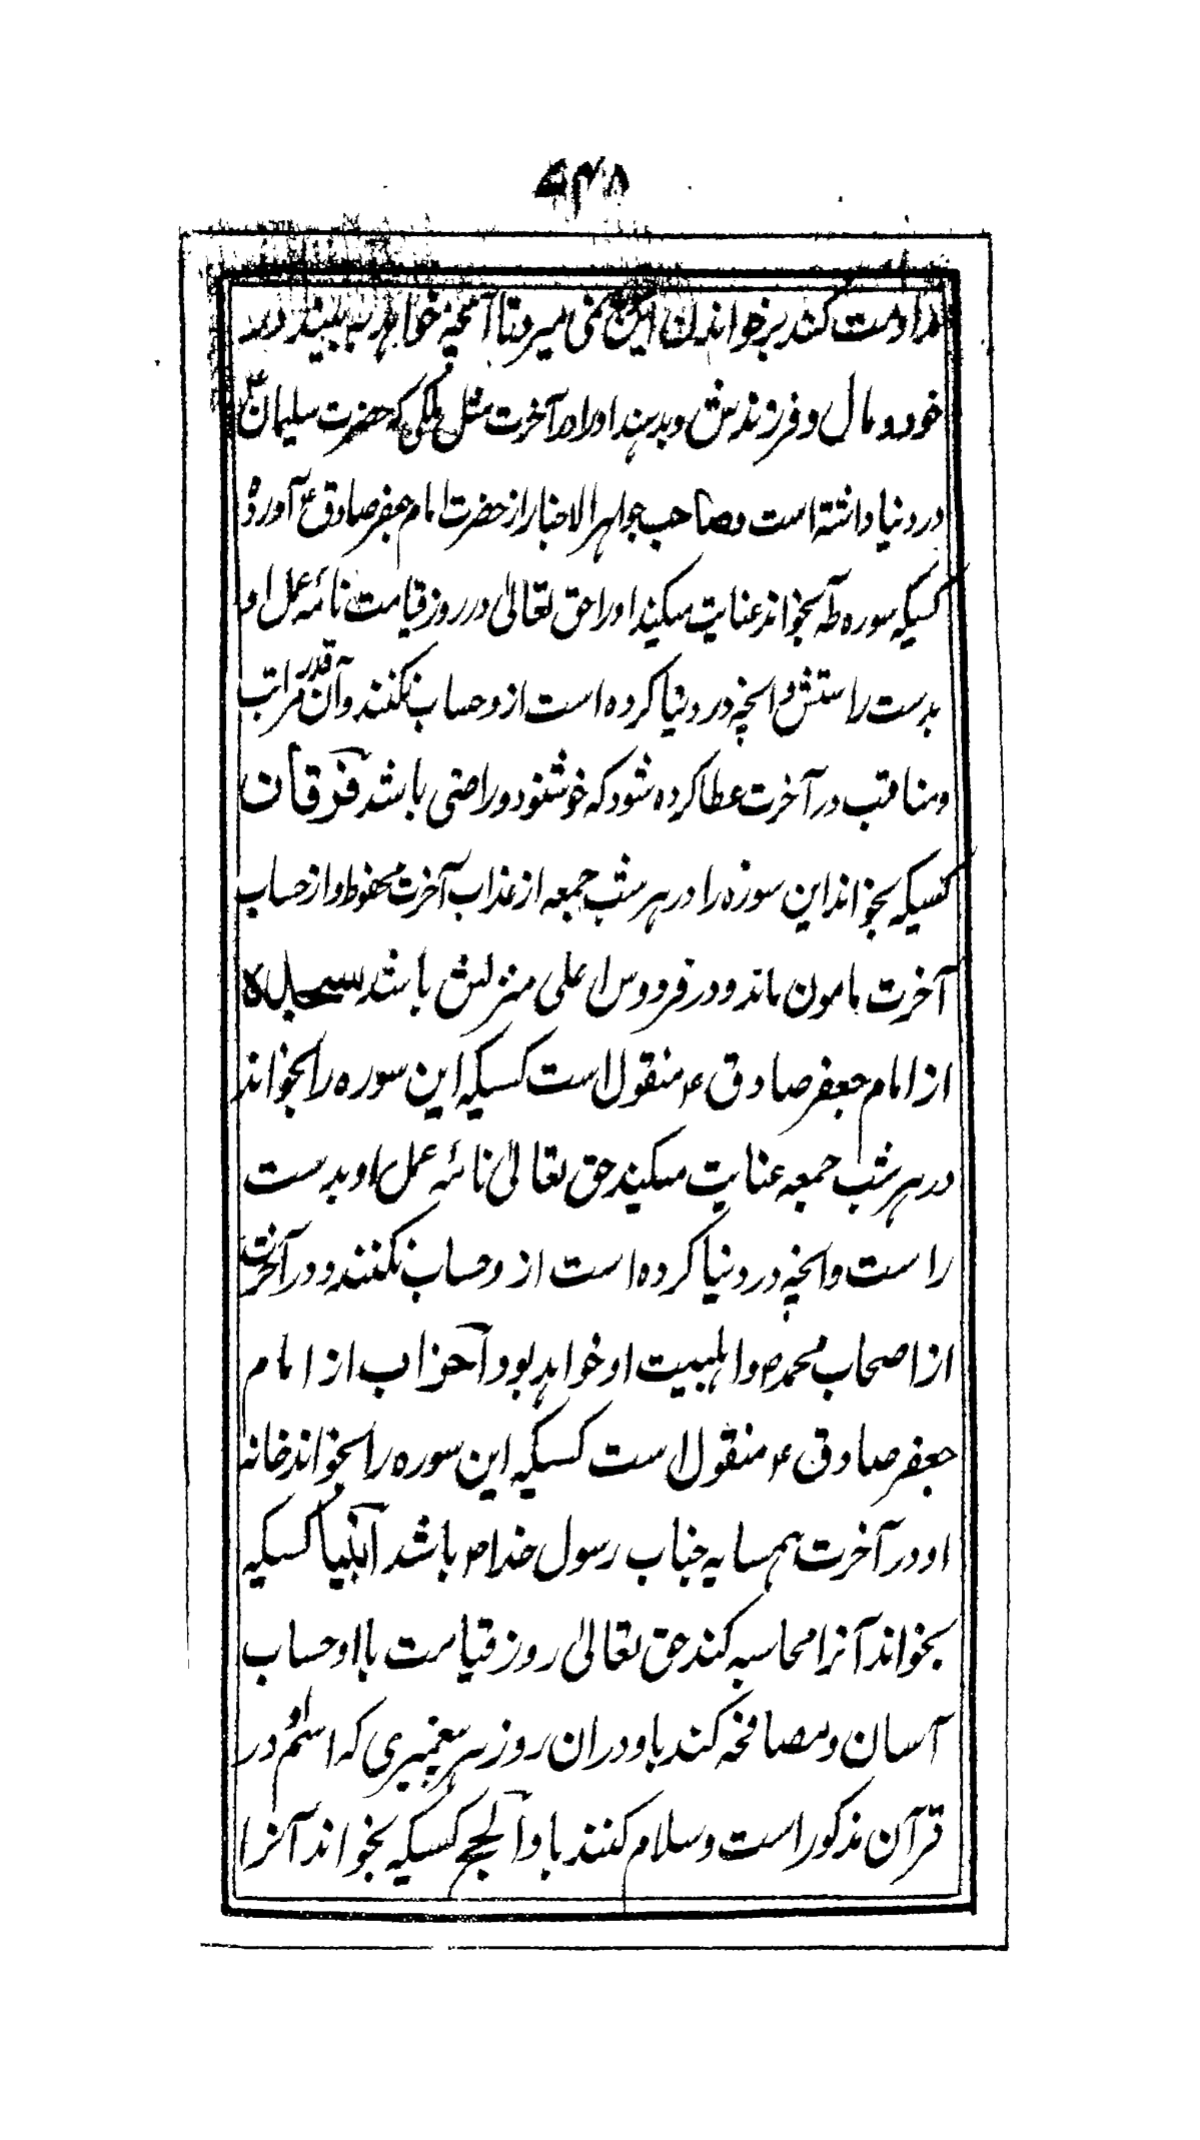 مداومت کند بر خواندن این نمی میرد تا آنچه خواهد به بیند در
خود و مال و فرزندش و بدهند او را در آخرت مثل ملکی که حضرت سلیمان ع
در دنیا داشته است و صاحب جواهر الاخبار از حضرت امام جعفر صادق ع آورده
کسیکه سوره طه بخواند عنایت میکند او را حق تعالی در روز قیامت نامه عمل او
بدست راستش و انچه در دنیا کرده است از و حساب نکنند و آن قدر مراتب
و مناقب در آخرت عطا کرده شود که خوشنود و راضی باشد فرقان
کسیکه بخواند این سوره را در هر شب جمعه از عذاب آخرت محفوظ و از حساب
آخرت مامون ماند و در فردوس اعلی منزلش باشد سجده
از امام جعفر صادق ع منقول است کسیکه این سوره را بخواند
در هر شب جمعه عنایت میکند حق تعالی نامه عمل او بدست
راست و انچه در دنیا کرده است از و حساب نکنند و در آخرت
از اصحاب محمد ص و اهلبیت او خواهد بود آحزاب از امام
جعفر صادق ع منقول است کسیکه این سوره را بخواند خانه
او در آخرت همسایه جناب رسول خدا ص باشد آنبیا کسیکه
بخواند آنرا محاسبه کند حق تعالی روز قیامت با او حساب
آسان و مصافحه کند باو دران روز هر پیغمبری که اسم او در
قرآن مذکور است و سلام کنند باو آلحج کسیکه بخواند آنرا